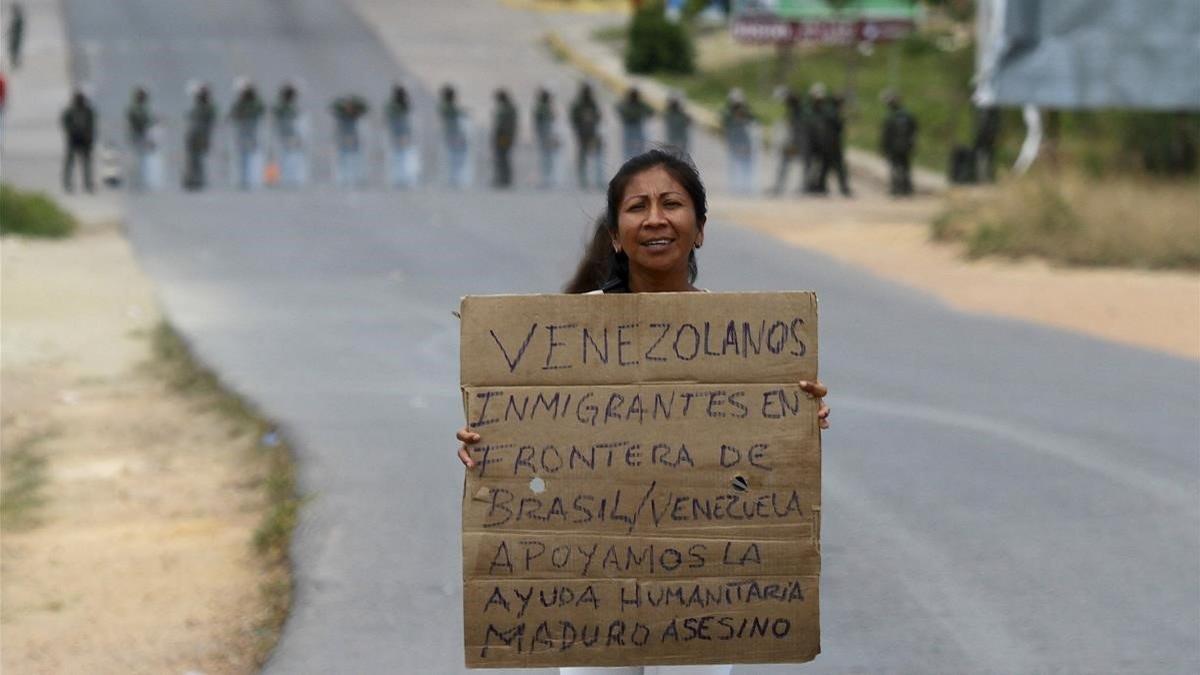 VENEZOLANOS
INMIGRANTES EN
FRONTERA DE
BRASIL/VENEZUELA
APOYAMOS LA
AYUDA HUMANITARIA
MADURO ASESINO